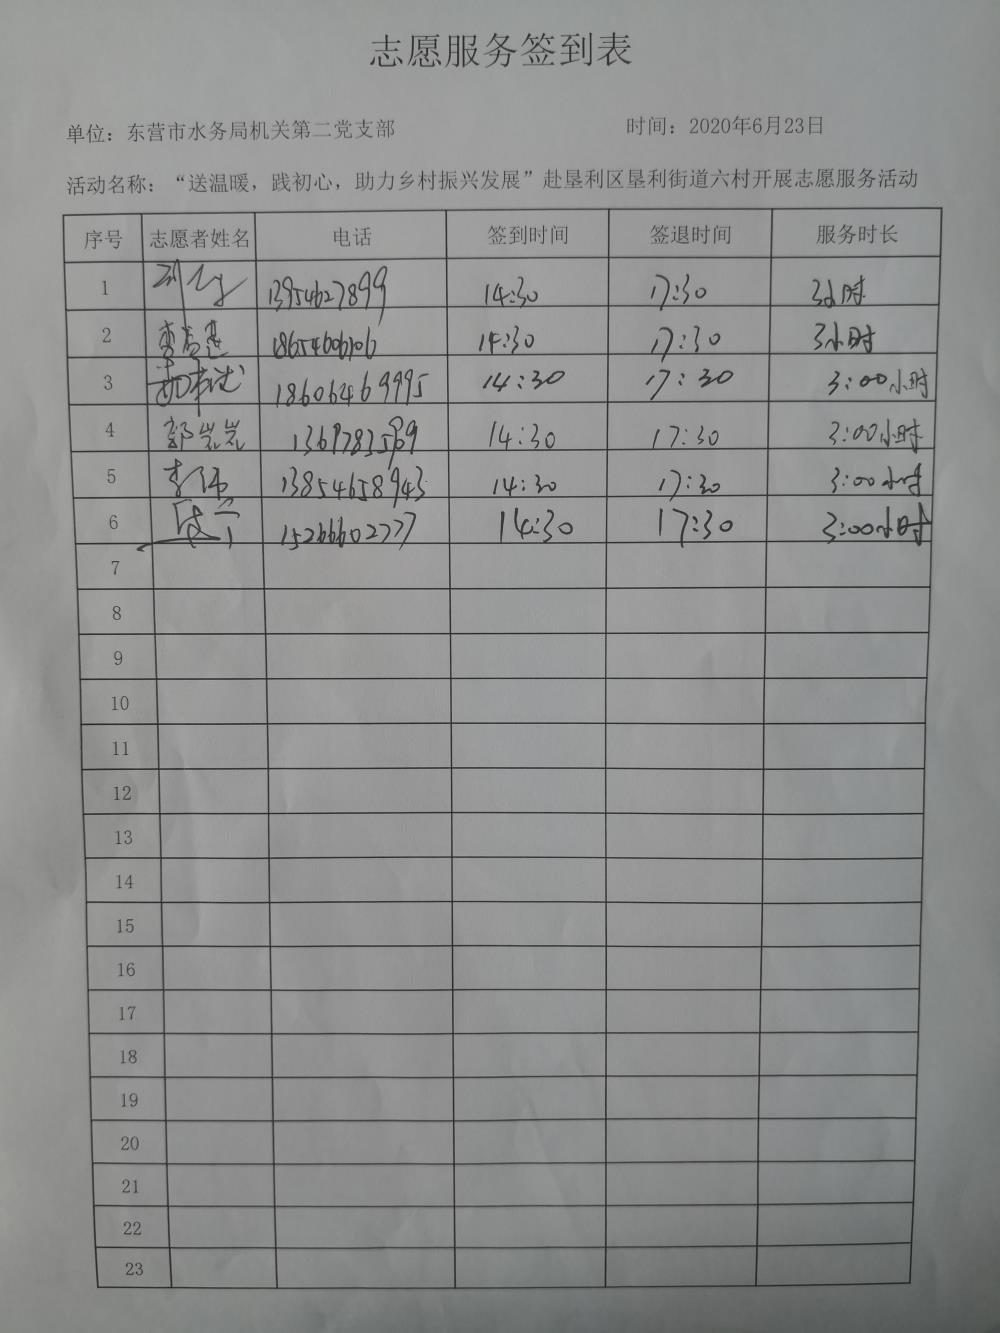 志愿服务签到表
单位：东营市水务局机关第二党支部 时间：2020年6月23日
活动名称：“送温暖，践初心，助力乡村振兴发展”赴垦利区垦利街道六村开展志愿服务活动
序号 志愿者姓名 电话 签到时间 签退时间 服务时长
1 13954627899 14:30 17:30 3小时
2 18654606106 14:30 17:30 3小时
3 18606469995 14:30 17:30 3:00小时
4 郭岩岩 14:30 17:30 3:00小时
5 李伟 13854658943 14:30 17:30 3:00小时
6 15266602777 14:30 17:30 3:00小时
7
8
9
10
11
12
13
14
15
16
17
18
19
20
21
22
23